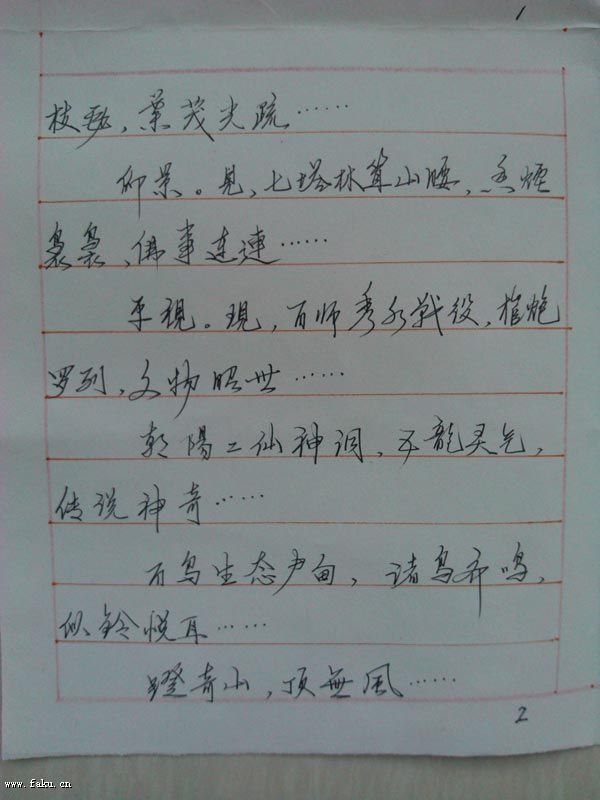 1
枝繁，葉茂光疏……
仰景。見，七塔林耸山腰，香煙
袅袅，佛事连連……
平視。現，百师秀水戰役，槍炮
罗列，文物昭世……
朝陽二仙神洞，五龍灵气，
传说神奇……
百鸟生态芦甸，诸鸟齐鸣，
似鈴悦耳……
蹬奇山，顶無風……
2
www.faku.cn